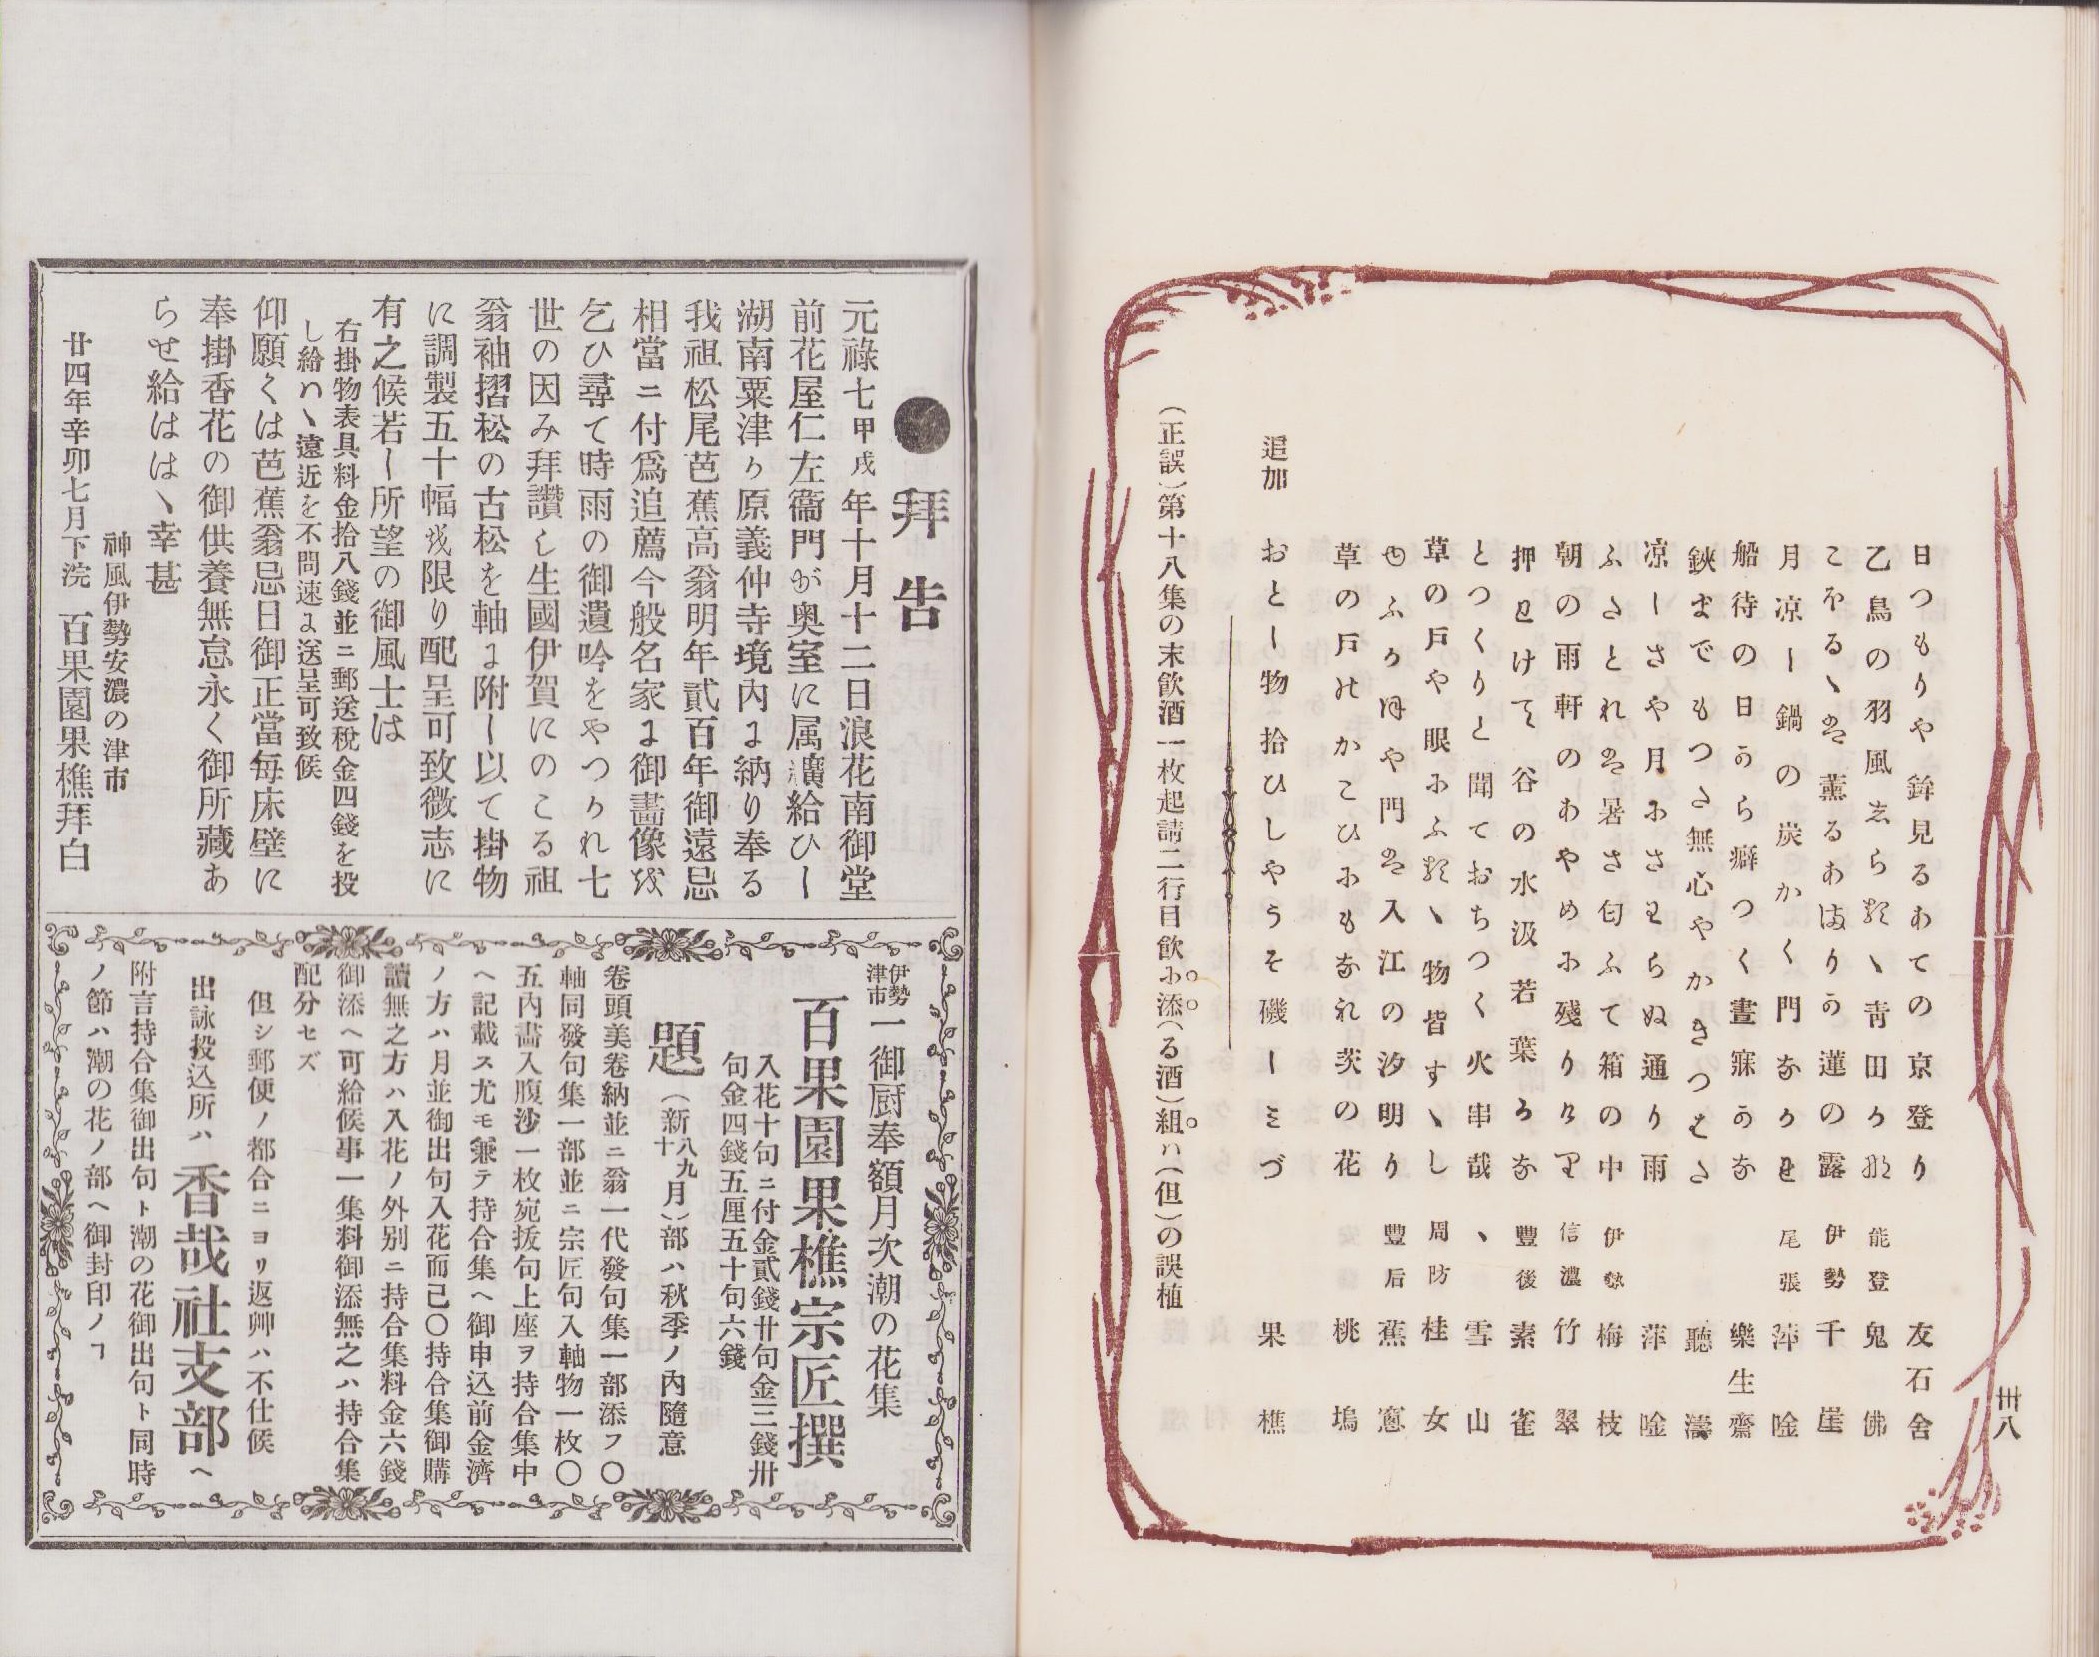 卅八
日つもりや鉾見るあての京登り 友石舍
乙鳥の羽風ゑら𛃭ヽ青田か𛂁 能登 鬼佛
こ𛂶るヽ𛂞薫るあ𛃅りう蓮の露 伊勢 千崖
月凉し鍋の炭かく門𛂂か𛀁 尾張 萍唫
船待の日うら癖つく晝寐う𛂂 樂生齋
鋏𛃅でもつさ無心やかきつ𛂦さ 聽濤
凉しさや月𛂌さ𛀁らぬ通り雨 萍唫
ふさとれ𛂞暑さ匂ふて箱の中 伊勢 梅枝
朝の雨軒のあやめ𛂌殘りけ𛃶 信濃 竹翠
押𛄚けて谷の水汲若葉か𛂂 豐後 素雀
とつくりと聞ておちつく火串哉 ヽ 雪山
草の戸や眼𛂌ふ𛃭ヽ物皆すヽし 周防 桂女
ゆふか𛂵や門𛂞入江の汐明り 豐后 蕉窓
草の戸𛂜かこひ𛂌も𛂂れ茨の花 桃塢
追加
おとし物拾ひしやうそ磯しミづ 果樵
(正誤)第十八集の末飲酒一枚起請二行目飲𛂌添(る酒)組ハ(但)の誤植
●拜告
元祿七甲戌年十月十二日浪花南御堂
前花屋仁左衞門が奥室に属纊給ひし
湖南粟津か原義仲寺境内に納り奉る
我祖松尾芭蕉高翁明年貳百年御遠忌
相當ニ付爲追薦今般名家に御畵像を
乞ひ尋て時雨の御遺吟をやつかれ七
世の因み拜讃し生國伊賀にのこる祖
翁袖摺松の古松を軸に附し以て掛物
に調製五十幅を限り配呈可致微志に
有之候若し所望の御風士は
右掛物表具料金拾八錢並ニ郵送税金四錢を投
し給ハヽ遠近を不問速に送呈可致候
仰願くは芭蕉翁忌日御正當毎床壁に
奉掛香花の御供養無怠永く御所藏あ
らせ給はヽ幸甚
神風伊勢安濃の津市
廿四年辛卯七月下浣 百果園果樵拜白
伊勢津市 一御厨奉額月次潮の花集
百果園果樵宗匠撰
入花十句ニ付金貳錢廿句金三錢卅
句金四錢五厘五十句六錢
題 (新八九十月)部ハ秋季ノ内隨意
卷頭美卷納並ニ翁一代發句集一部添フ〇
軸同發句集一部並ニ宗匠句入軸物一枚〇
五内畵入腹沙一枚宛拔句上座ヲ持合集中
ヘ記載ス尤モ兼テ持合集ヘ御申込前金濟
ノ方ハ月並御出句入花而已〇持合集御購
讀無之方ハ入花ノ外別ニ持合集料金六錢
御添ヘ可給候事一集料御添無之ハ持合集
配分セズ
但シ郵便ノ都合ニヨリ返艸ハ不仕候
出詠投込所ハ 香哉社支部ヘ
附言持合集御出句ト潮の花御出句ト同時
ノ節ハ潮の花ノ部ヘ御封印ノヿ